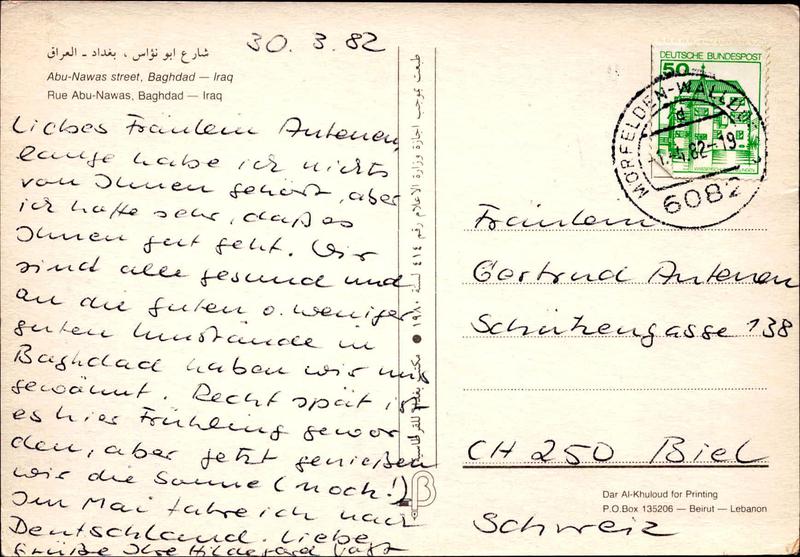 شارع ابو نؤاس ، بغداد ـ العراق
Abu-Nawas street, Baghdad — Iraq
Rue Abu-Nawas, Baghdad — Iraq
30. 3. 82
Liebes Fräulein Antenen,
lange habe ich nichts
von Ihnen gehört, aber
ich hoffe sehr, daß es
Ihnen gut geht. Wir
sind alle gesund und
an die guten o. weniger
guten Umstände in
Baghdad haben wir uns
gewöhnt. Recht spät ist
es hier Frühling gewor
den, aber jetzt genießen
wir die Sonne (noch!)
Im Mai fahre ich nach
Deutschland. Liebe
Grüße Ihre Hildegard
طبعت بموجب اجازة وزارة الاعلام رقم ٤١٤ لسنة ١٩٨٠ ● مكتب بغداد للقرطاسية
DEUTSCHE BUNDESPOST
50
MÖRFELDEN-WALLDORF
d
.4.82-19
6082
Fräulein
Gertrud Antenen
Schützengasse 138
CH 250 Biel
Dar Al-Khuloud for Printing
P.O.Box 135206 — Beirut — Lebanon
Schweiz